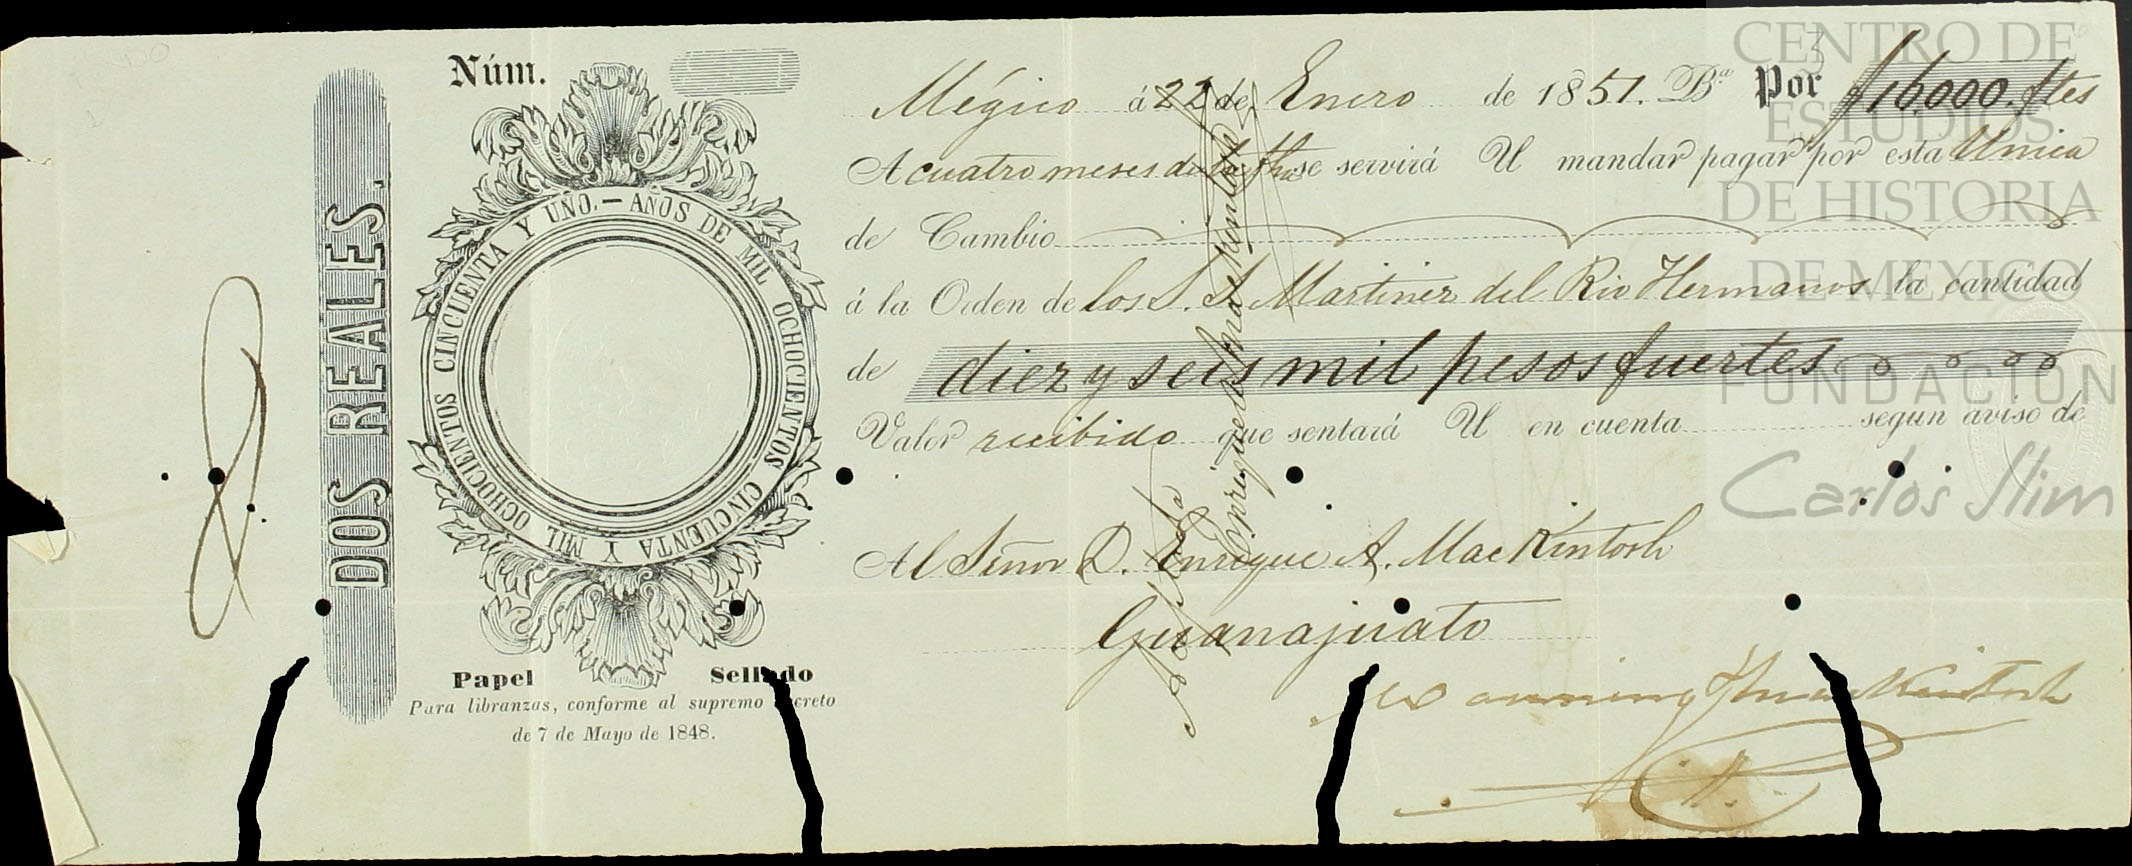 Núm.
Mégico á 22 de Enero de 1851. Bª Por $16.000. ftes
A cuatro meses de la fha se servirá U mandar pagar por esta Unica
de Cambio
á la Orden de los S. S. Martinez del Rio Hermanos la cantidad
de diez y seis mil pesos fuertes
Valor recibido que sentará U en cuenta segun aviso de
Al Señor D. Enrique A. MacKintosh
Guanajuato
Manning y MacKintosh
DOS REALES.
AÑOS DE MIL OCHOCIENTOS CINCUENTA Y MIL OCHOCIENTOS CINCUENTA Y UNO.—
Papel Sellado
Para libranzas, conforme al supremo decreto
de 7 de Mayo de 1848.
Enrique MacKintosh
CENTRO DE
ESTUDIOS
DE HISTORIA
DE MEXICO
FUNDACIÓN
Carlos Slim